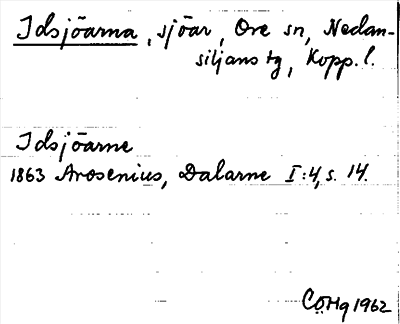 Idsjöarna, sjöar, Ore sn, Nedan-
siljans tg, Kopp. l.
Idsjöarne
1863 Arosenius, Dalarne I:4, s. 14.
CÖHg 1962